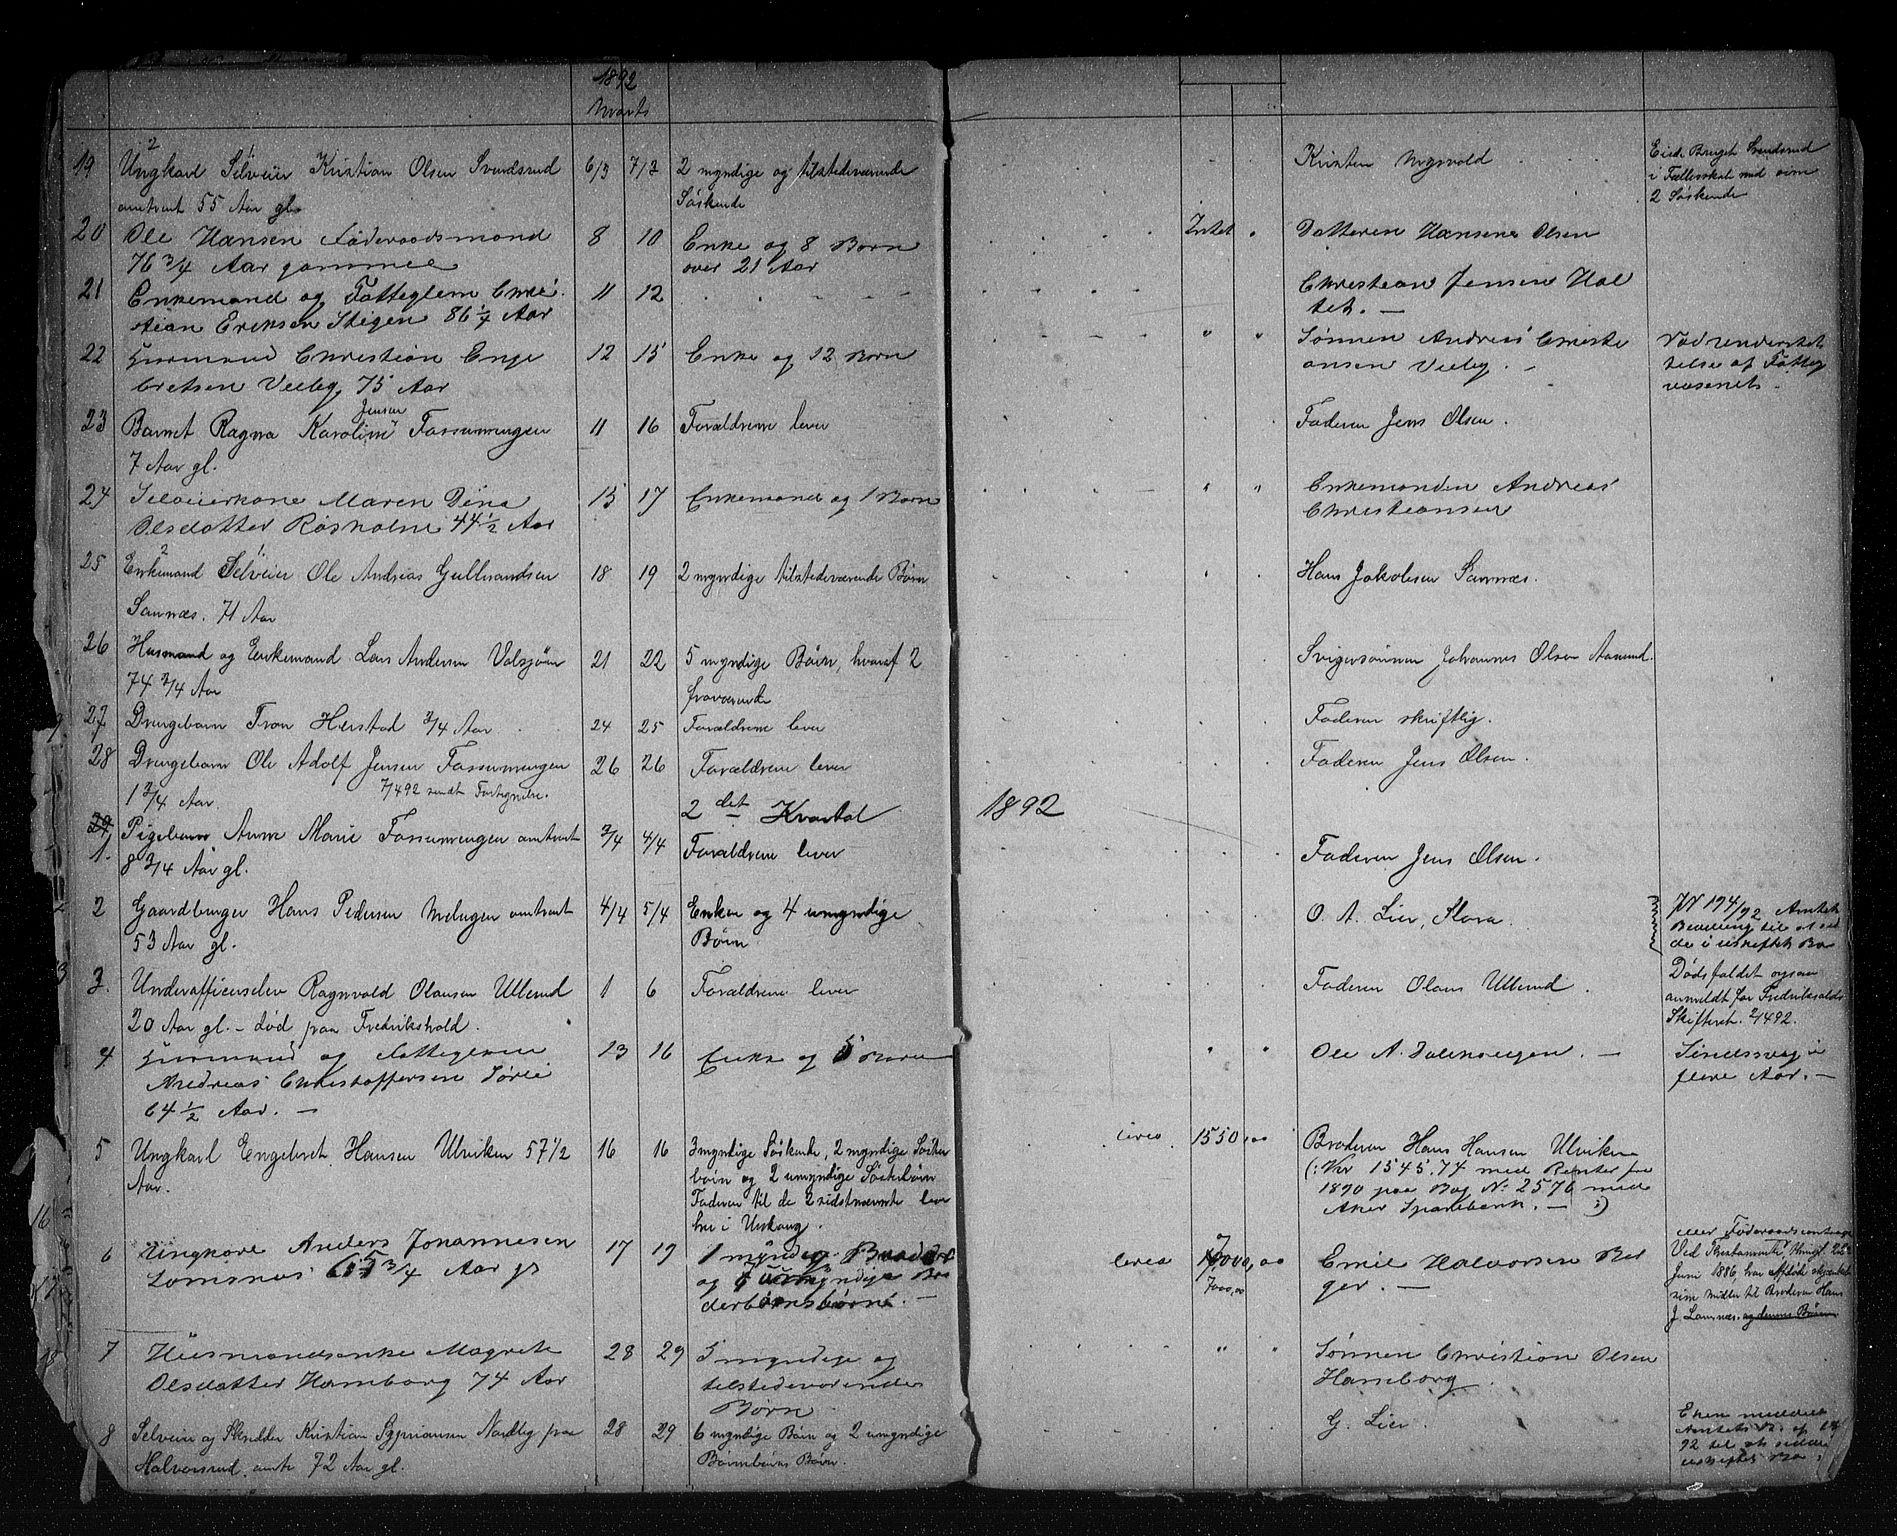 1892
Marts
19 Ungkarl Selveier Kristian Olsen Svendsrud 6/3 7/3 2 myndige og tilstedeværende Kristen Mysvold Eied. Bruget Svendsrud
omtrent 55 Aar gl. Søskende i Fællesskab med sine
2 Søskende
20 Ole Hansen Føderaadsmand 8 10 Enke og 8 Børn Intet Datteren Hansine Olsen
76 3/4 Aar gammel over 21 Aar
21 Enkemand og Fatteglem Chri 11 12 Christian Jensen Hol
stian Eriksen Stigen 86 1/4 Aar tet. —
22 Husmand Christian Enge 12 15 Enke og 12 Børn " " Sønnen Andreas Christi Nødunderstøt
bretsen Veeby 75 Aar ansen Veeby. — telse af Fatteg
væsenet.
23 Barnet Ragna Karoline Jensen Fossumengen 11 16 Forældrene lever Faderen Jens Olsen.
7 Aar gl.
24 Selveierkone Maren Dina 15 17 Enkemand og 1 Barn " " Enkemanden Andreas
Olsdatter Røsholm 44 1/2 Aar Christiansen
25 Enkemand Selveier Ole Andreas Gulbrandsen 18 19 2 myndige tilstedeværende Børn Hans Jakobsen Sannæs.
Sannæs. 71 Aar
26 Husmand og Enkemand Lars Andersen Valsjøen 21 22 5 myndige Børn, hvoraf 2 Svigersønnen Johannes Olsen Aasund.
74 3/4 Aar fraværende
27 Drengebarn Tron Herstad 3/4 Aar 24 25 Forældrene lever Faderen skriftlig.
28 Drengebarn Ole Adolf Jensen Fossumengen 26 26 Forældrene lever Faderen Jens Olsen.
1 3/4 Aar. 7/4 92 sendt Fortegnelse.
2det Kvartal 1892
29 1. Pigebarn Anne Marie Fossumengen omtrent 2/4 4/4 Forældrene lever Faderen Jens Olsen.
8 3/4 Aar gl.
2 Gaardbruger Hans Pedersen Melengen omtrent 4/4 5/4 Enken og 4 umyndige O. A. Lier, Flora. PN 194/92 Amtets
53 Aar gl. Børn. Bevilling til at sid
de i uskiftet Bo
3. Underofficerselev Ragnvald Olausen Ullerud 1 6 Forældrene lever Faderen Olaus Ullerud. Dødsfaldet ogsaa
20 Aar gl. – død paa Fredrikshald. anmeldt for Fredrikshalds
Skifteret. 2/4 92.
4 Husmand og Fattiglem 13 16 Enke og 5 Børn " " Ole A. Dalshaugen. — Sindssvag i
Andreas Christoffersen Sørli flere Aar. —
64 1/2 Aar. —
5 Ungkarl Engebret Hansen Ulviken 57 1/2 16 16 3 myndige Søskende, 2 myndige Søster circa 1550,00 Broderen Hans Hansen Ulviken
Aar. børn og 2 umyndige Søsterbørn (: Kr 1545.74 med Renter for
Faderen til de 2 sidstnævnte lever 1890 paa Bog No 2576 med
her i Urskoug. Aker Sparebank. — :)
6 Ungkarl Anders Johannesen 17 19 1 myndig Broder circa 7000,00 Emil Halvorsen Bol
Lomsnæs 65 3/4 Aar gl og umyndige Bro 7000,00 ger. —
derbørnsbørn. —
eller Føderaadscontragt
Ved Testamente thingl. 22de
Juni 1886 har Afdøde skjænket
sine midler til Broderen Hans
J. Lomsnæs. og dennes Børn
7 Husmandsenke Magrete 28 29 3 myndige og " " Sønnen Christian Olsen
Olsdatter Hamborg 74 Aar tilstedeværende Hamborg.
Børn.
8 Selveier og Skrædder Kristian Syprianssen Nordby paa 28 29 6 myndige Børn og 2 umyndige G. Lier. Enken meddelt
Halvorsrud, omtr. 72 Aar gl. Børnebørns Børn. Amtets B. af
92 til at sidde i
uskiftet Bo